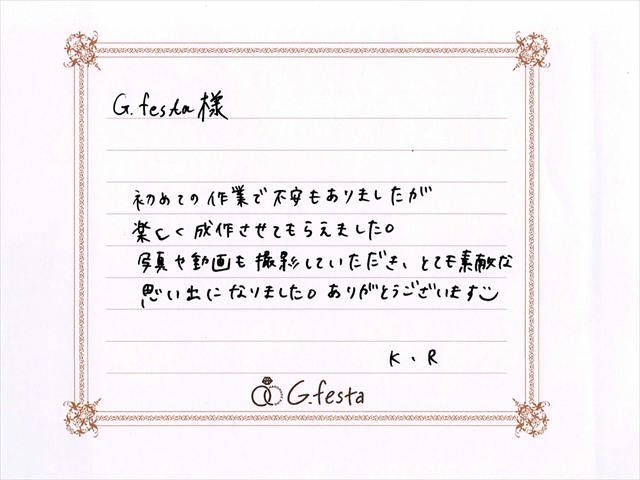 G.festa様
初めての作業で不安もありましたが
楽しく成作させてもらえました。
写真や動画も撮影していただき、とても素敵な
思い出になりました。ありがとうございます
K、R
G.festa